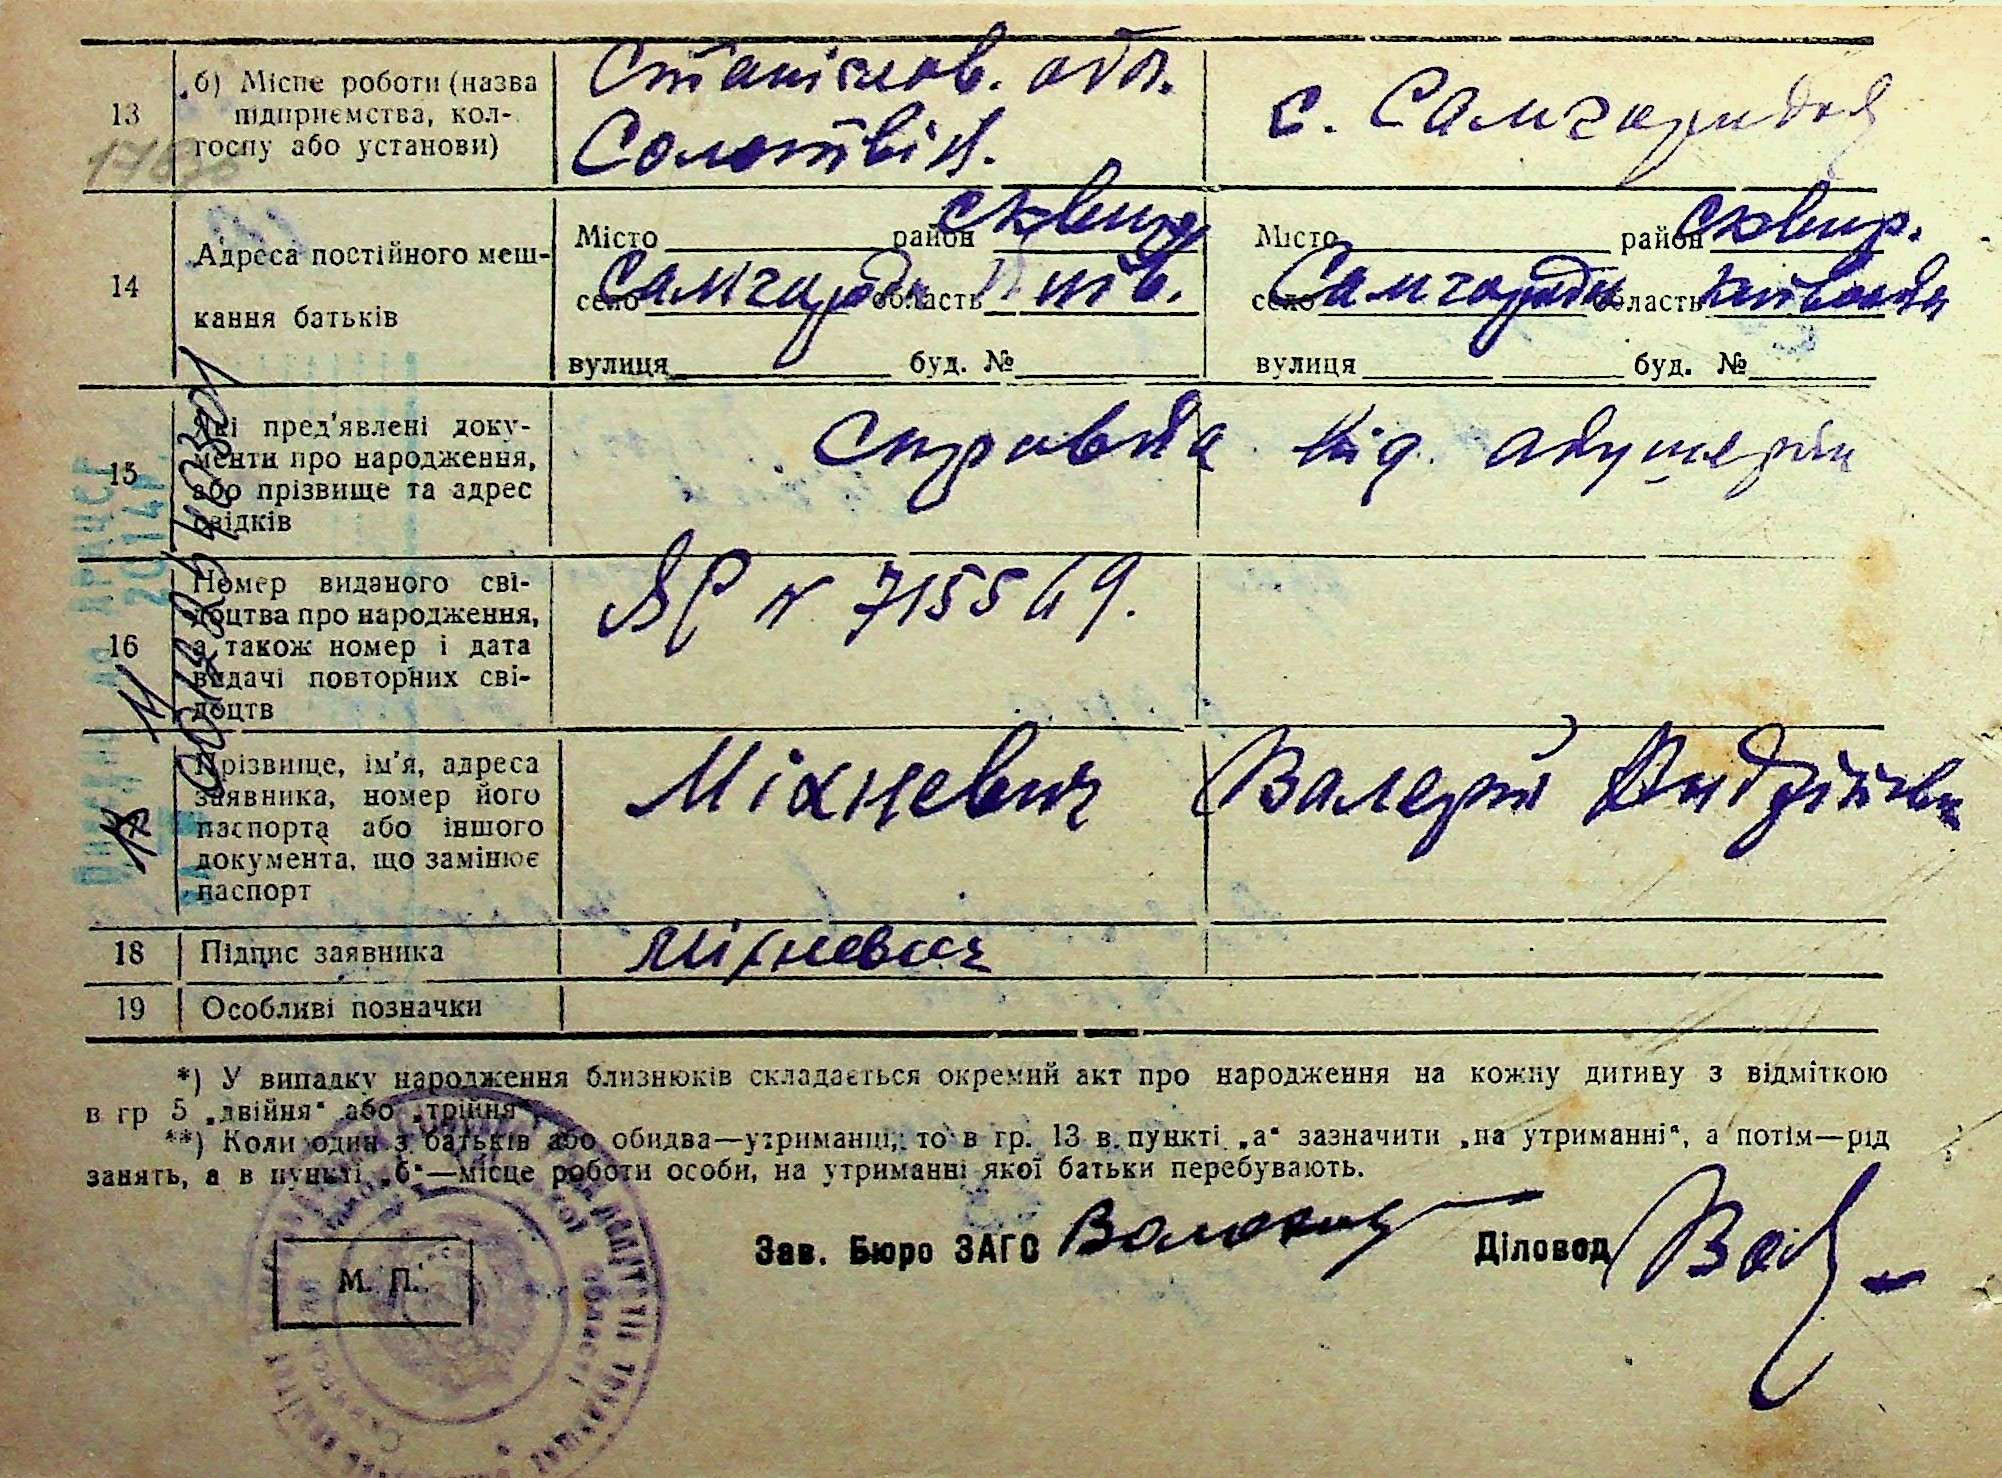 13 б) Місце роботи (назва
підприємства, кол-
госпу або установи)
Станіслав. обл.
Солотвін.
с. Самгородок
14 Адреса постійного меш-
кання батьків
Місто район Сквир
село Самгородок область Київ.
вулиця буд. №
Місто район Сквир.
село Самгородок область Київська
вулиця буд. №
15 Які пред'явлені доку-
менти про народження,
або прізвище та адрес
свідків
Справка від акушерки
16 Номер виданого сві-
доцтва про народження,
а також номер і дата
видачі повторних сві-
доцтв
№ 715569.
Прізвище, ім'я, адреса
заявника, номер його
паспорта або іншого
документа, що замінює
паспорт
Міхневич Валерій Андрійович
18 Підпис заявника
Міхневич
19 Особливі позначки
*) У випадку народження близнюків складається окремий акт про народження на кожну дитину з відміткою
в гр 5 „двійня“ або „трійня“.
**) Коли один з батьків або обидва—утриманці, то в гр. 13 в пункті „а“ зазначити „на утриманні“, а потім—рід
занять, а в пункті „б“—місце роботи особи, на утриманні якої батьки перебувають.
Зав. Бюро ЗАГС
Діловод
М. П.